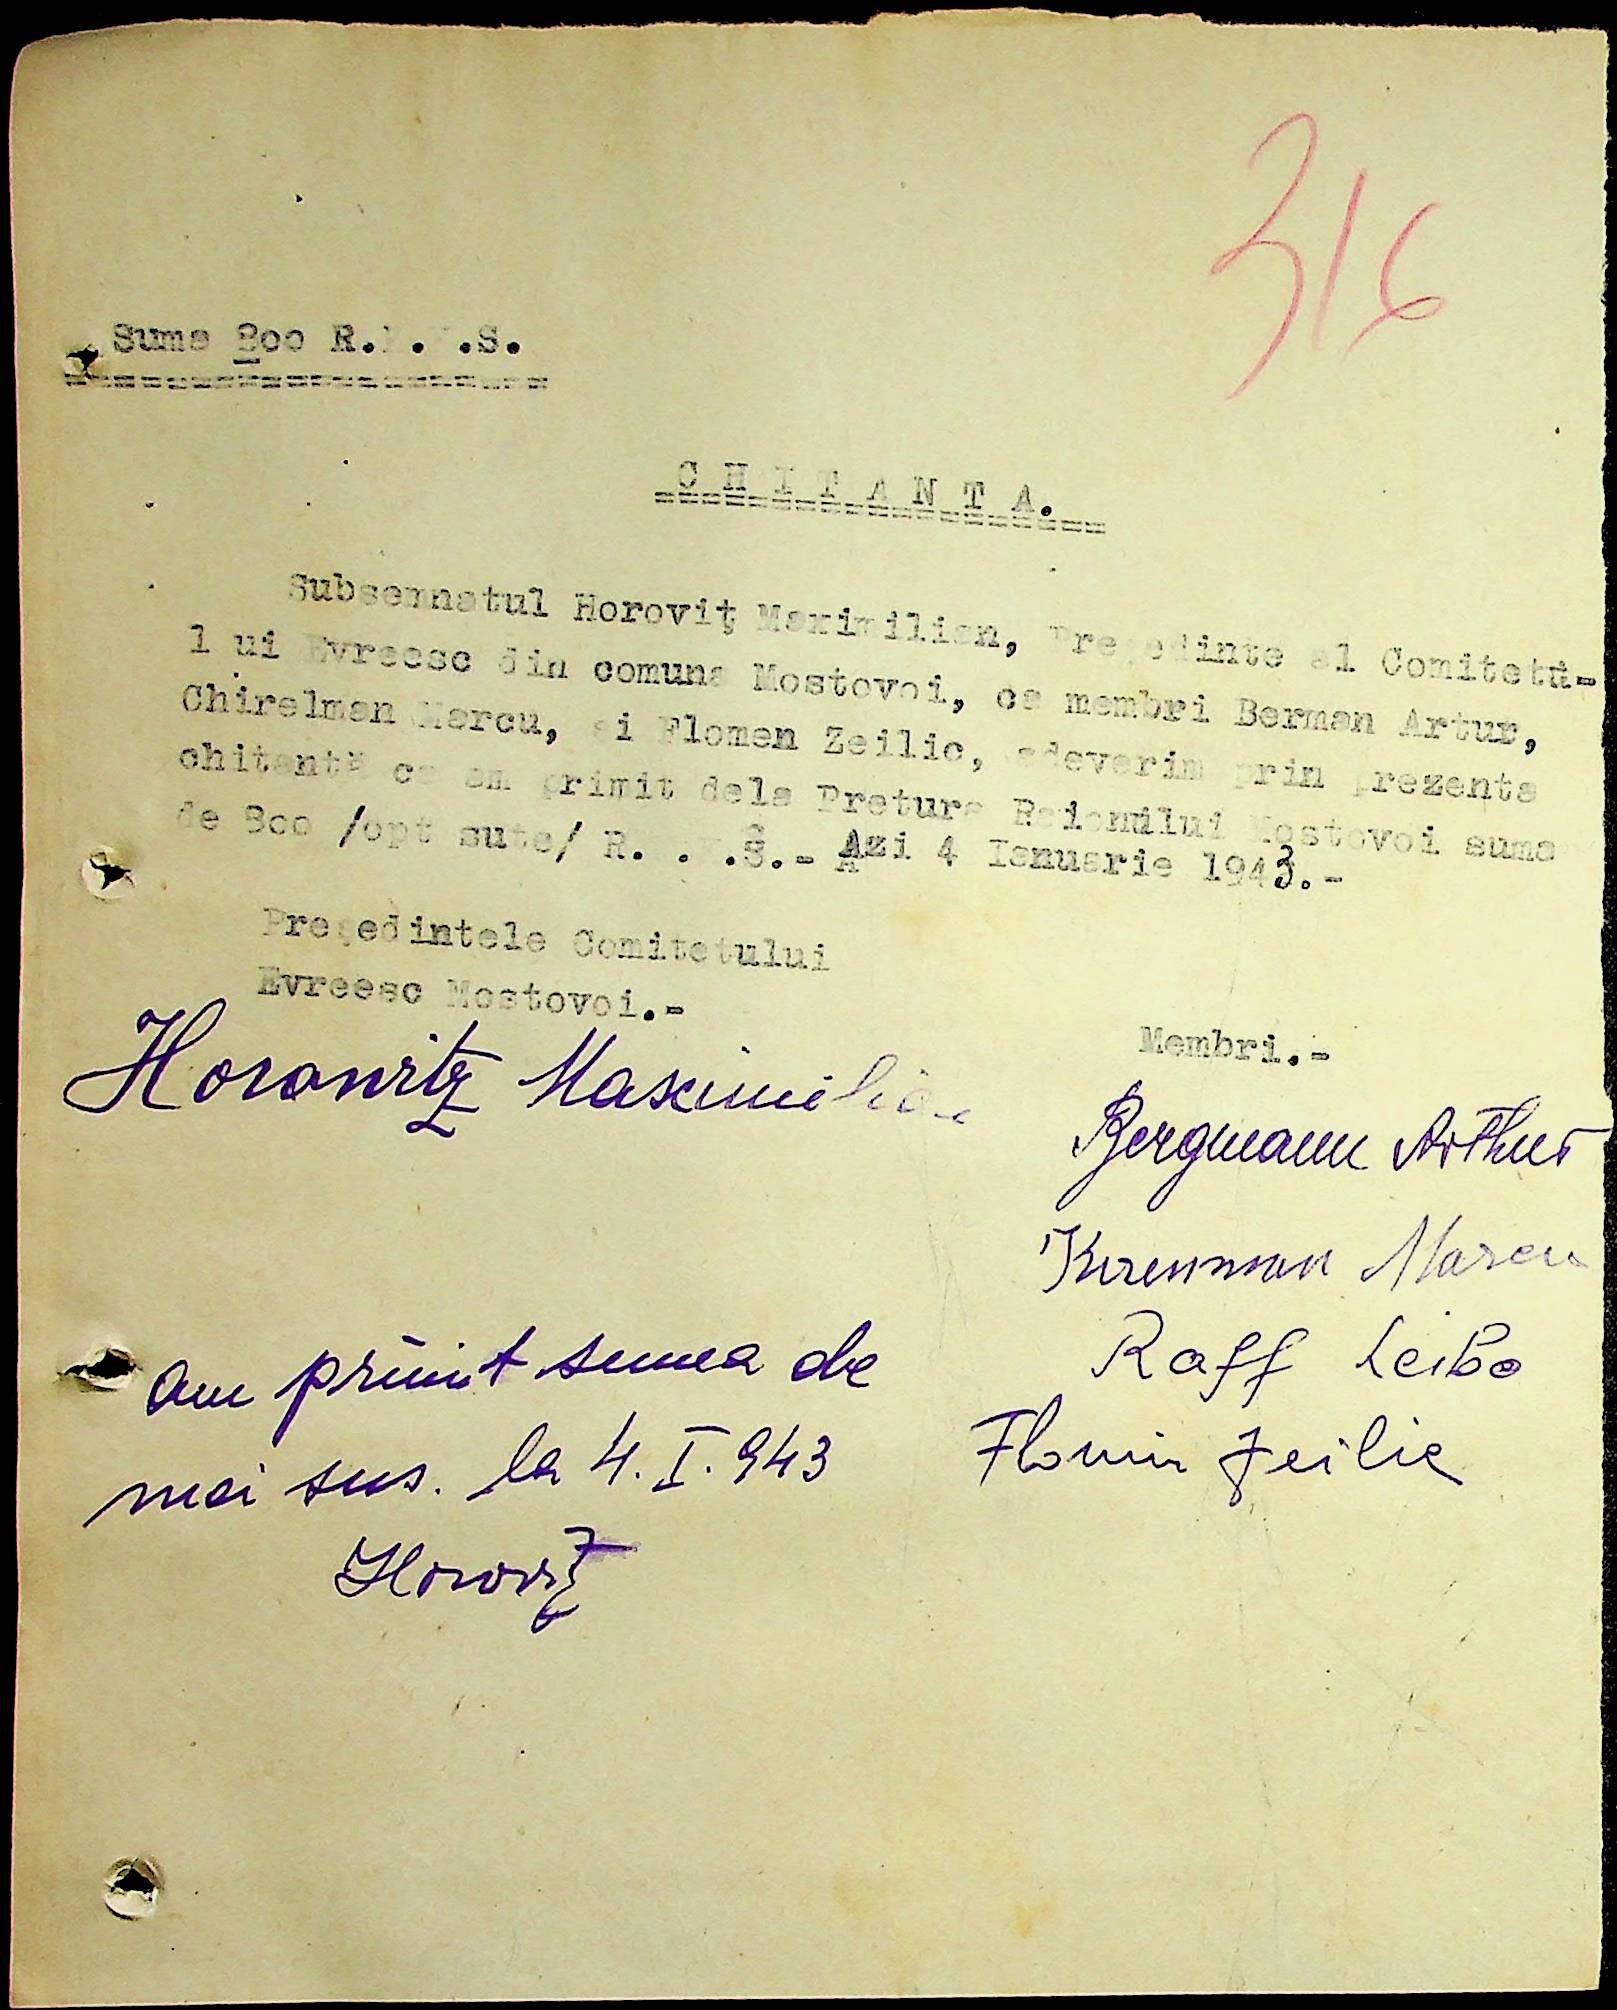 316
Suma 800 R. . .S.
CHITANTA.
Subsemnatul Horoviţ Maximilian, Preşedinte al Comitetu-
l ui Evreesc din comuna Mostovoi, ca membri Berman Artur,
Chirelman Marcu, si Flomen Zeilic, adeverim prin prezenta
chitantă ca am primit dela Pretura Raionului Mostovoi suma
de 800 /opt sute/ R. . .S.- Azi 4 Ianuarie 1943.-
Preşedintele Comitetului
Evreesc Mostovoi.-
Membri.-
Horowitz Maximilian
Bergmann Arthur
Marcu
Raff Leibo
Flomin Zeilic
am primit suma de
mai sus. la 4.I.943
Horovitz